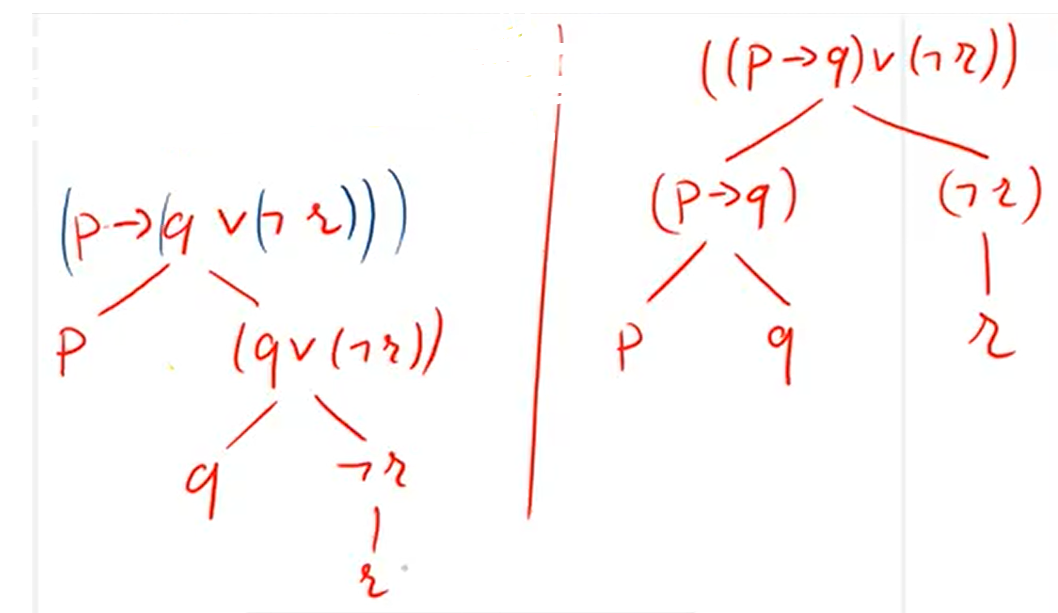 (p→(q ∨(¬ r)))
p (q∨(¬r))
q ¬r
r
((p→q)∨(¬r))
(p→q) (¬r)
p q r